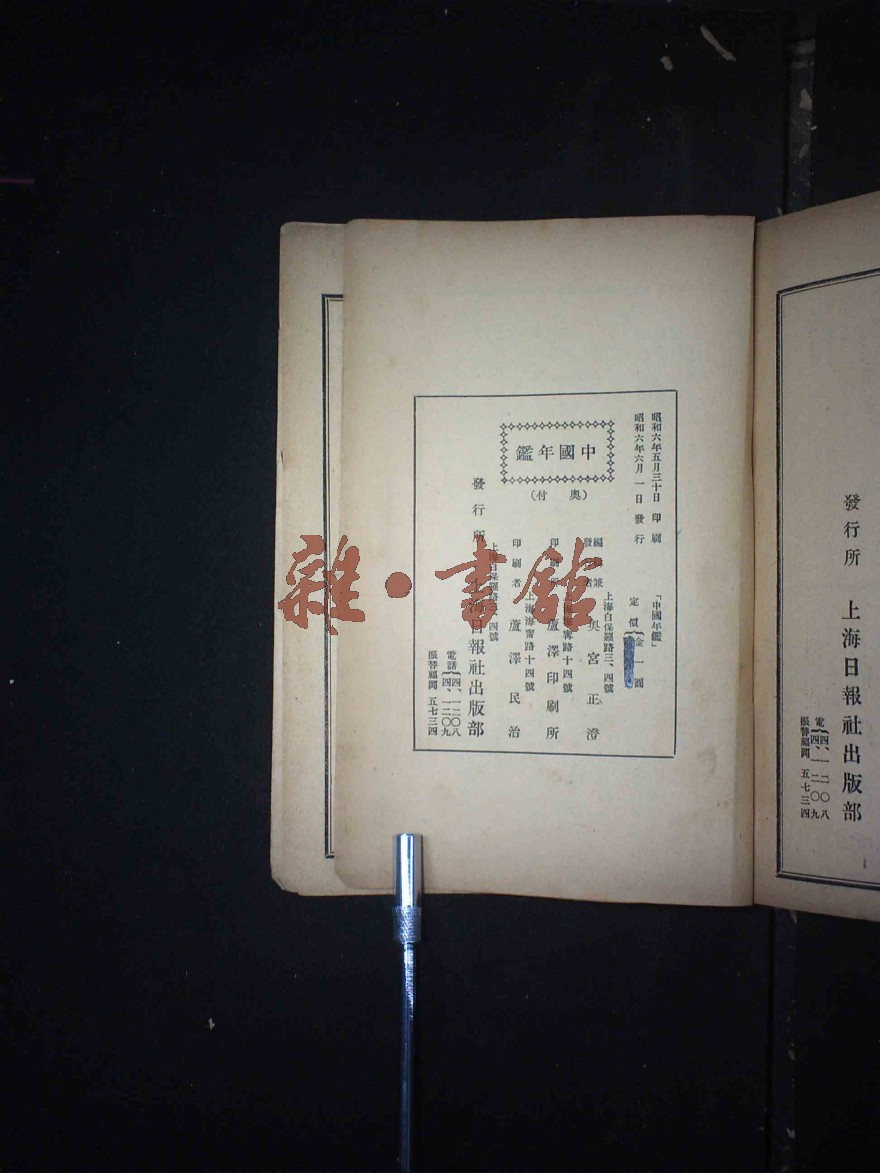 昭和六年五月三十日 印刷
昭和六年六月一日 發行
「中國年鑑」
定價 金一圓
中國年鑑
(奥付)
上海白保羅路三、四號
奥宮正澄
上海海甯路十四號
蘆澤印刷所
上海海甯路十四號
印刷者 蘆澤民治
上海白保羅路三、四號
發行所 上海日報社出版部
電話 四、一二〇八
四、一二〇九
振替福岡 五七三四
發行所 上海日報社出版部
電 四、一二〇八
四、一二〇九
振替福岡 五七三四
雜·書館